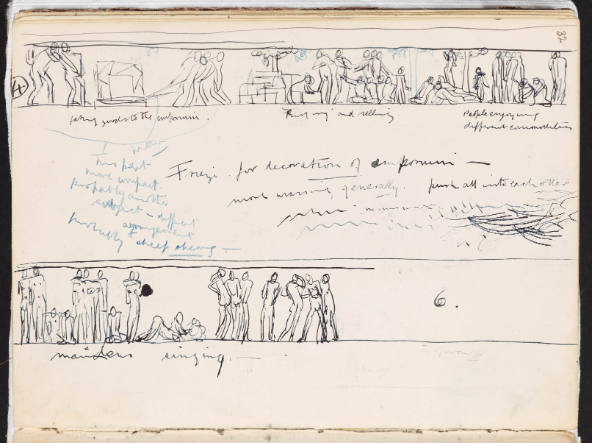 82
4
taking goods to the emporium.
Buying and selling
People enjoying
different commodities
Frieze for decoration of emporium —
This part
more compact.
more massing generally. push all into each other
Probably another
subject — different
arrangement
Probably sheep shearing —
6.
maidens singing. —